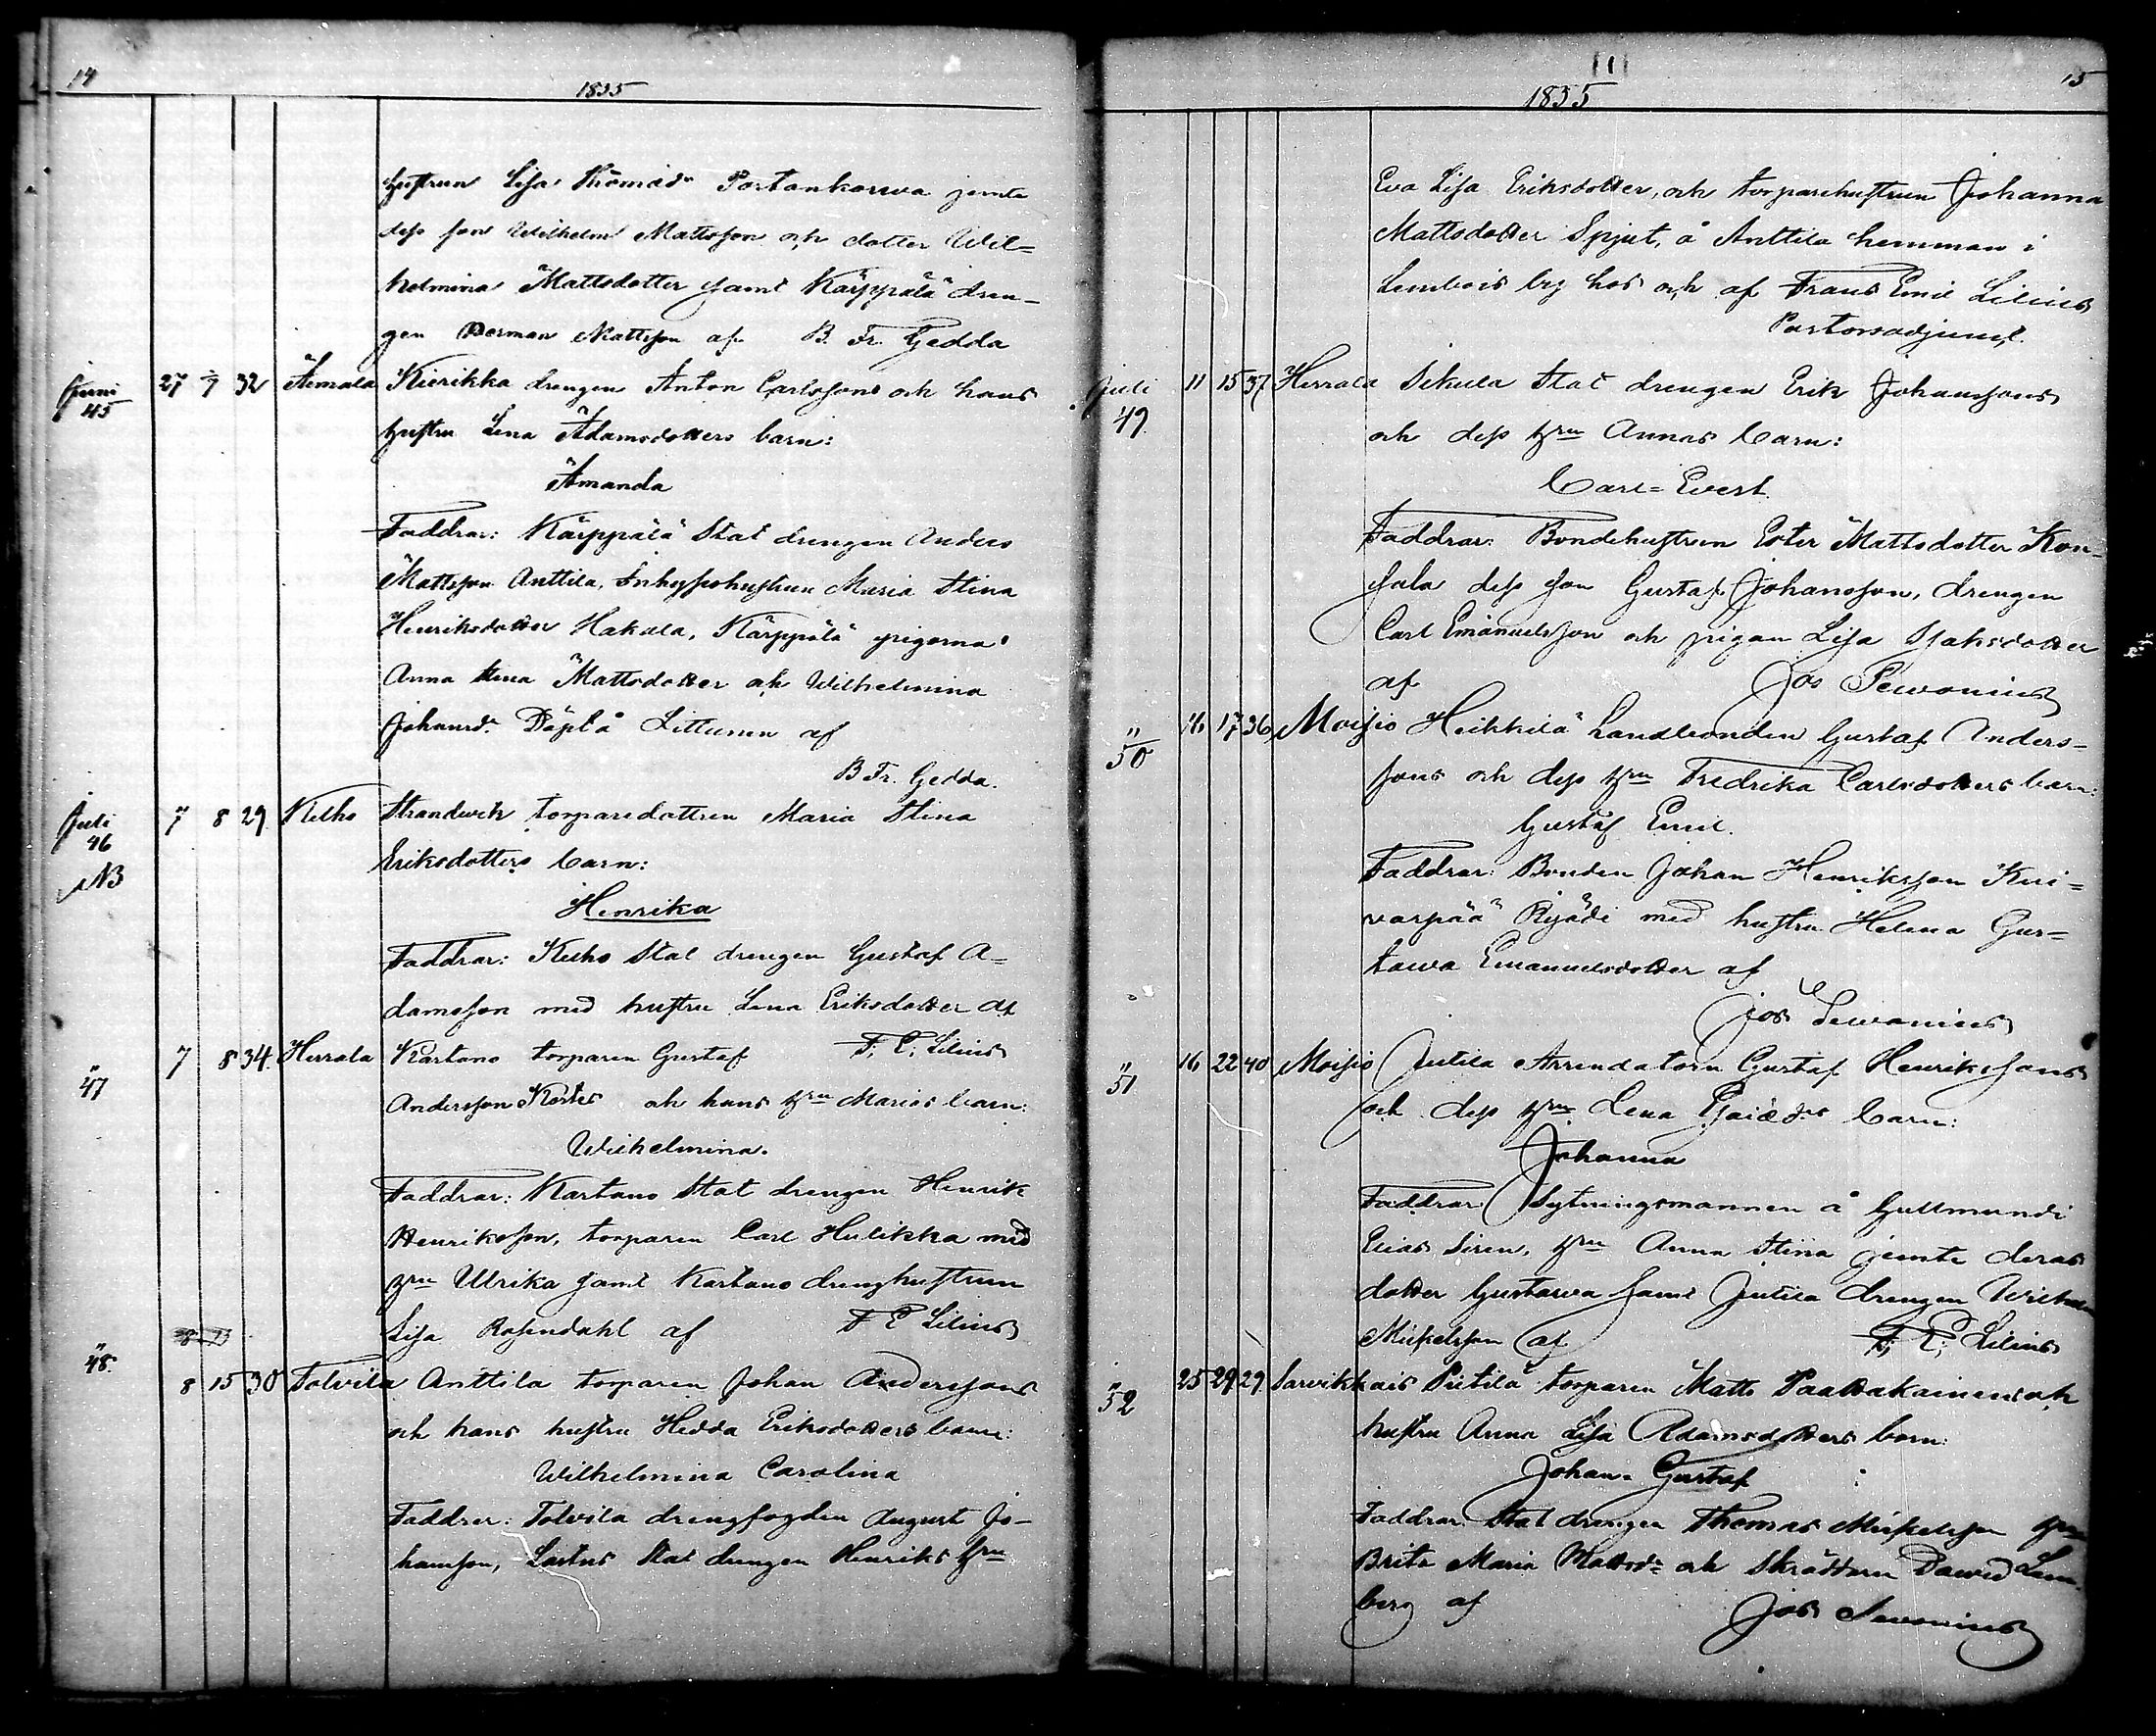 14
1855
hustrun Lisa Thomasdr Portankorwa jemte
dess son Wilhelm Mattsson och dotter Wil=
helmina Mattsdotter samt Kärppälä dren=
gen Herman Mattsson af B. Fr. Gedda
Juni 45 27 7 32 Aimala Kierikka drengen Anton Carlssons och hans
hustru Lena Adamsdotters barn:
Amanda
Faddrar: Kärppälä Stat drengen Anders
Mattsson Anttila, Inhyseshustrun Maria Stina
Henriksdotter Hakala, Kärppälä pigorna
Anna Stina Mattsdotter och Wilhelmina
Johansdr. Döpt å Littunen af
B Fr. Gedda.
Juli 46 7 8 29 Kelho Strandwik torparedottren Maria Stina
NB Eriksdotters barn:
Henrika
Faddrar: Kelho Stat drengen Gustaf A=
damsson med hustru Lena Eriksdotter af
F. E. Lilius
" 47 7 8 34. Herrala Kartano torparen Gustaf
Andersson Koster och hans hru Marias barn:
Wilhelmina.
Faddrar: Kartano Stat drengen Henrik
Henriksson, torparen Carl Hulikka med
hru Ulrika samt Kartano drenghustrun
Lisa Rosendahl af F E Lilius
" 48. 8 15 30 Tolvila Anttila torparen Johan Anderssons
och hans hustru Hedda Eriksdotters barn:
Wilhelmina Carolina
Faddrar: Tolvila drengfogden August Jo-
hansson, Lastus Stat drengen Henriks hru
15
1855
Eva Lisa Eriksdotter, och torparehustrun Johanna
Mattsdotter Spjut, å Anttila hemman i
Lembois by hos och af Frans Emil Lilius
Pastorsadjunct.
Juli 49. 11 15 37 Herrala Sikula Stat drengen Erik Johanssons
och dess hru Annas barn:
Carl=Evert.
Faddrar: Bondehustrun Ester Mattsdotter Kon=
sala dess son Gustaf Johansson, drengen
Carl Emanuelsson och pigan Lisa Isaksdotter
af Jos Sewonius
" 50 16 17 36 Moisio Heikkilä landbonden Gustaf Anders=
sons och dess hru Fredrika Carlsdotters barn:
Gustaf Emil.
Faddrar: Bonden Johan Henriksson Kui=
varpää Ryödi med hustru Helena Gus=
tawa Emanuelsdotter af
Jos Sewonius
" 51 16 22 40 Moisio Jutila Arrendatorn Gustaf Henrikssons
och dess hru Lena barn:
Johanna
Faddrar Sytningsmannen å Gullmundi
Elias Siren, hru Anna Stina jemte deras
dotter Gustawa samt Jutila drengen Wilhelm
Mickelsson af F. E. Lilius
" 52 25 29 29 Sarvikkais Pietilä torparen Matts Paattakainens och
hustru Anna Lisa Adamsdotters barn:
Johan Gustaf
Faddrar: Stat drengen Thomas Mickelsson hru
Brita Maria Mattsdr och Skräddarn Dawid Lem=
berg af Jos Sewonius